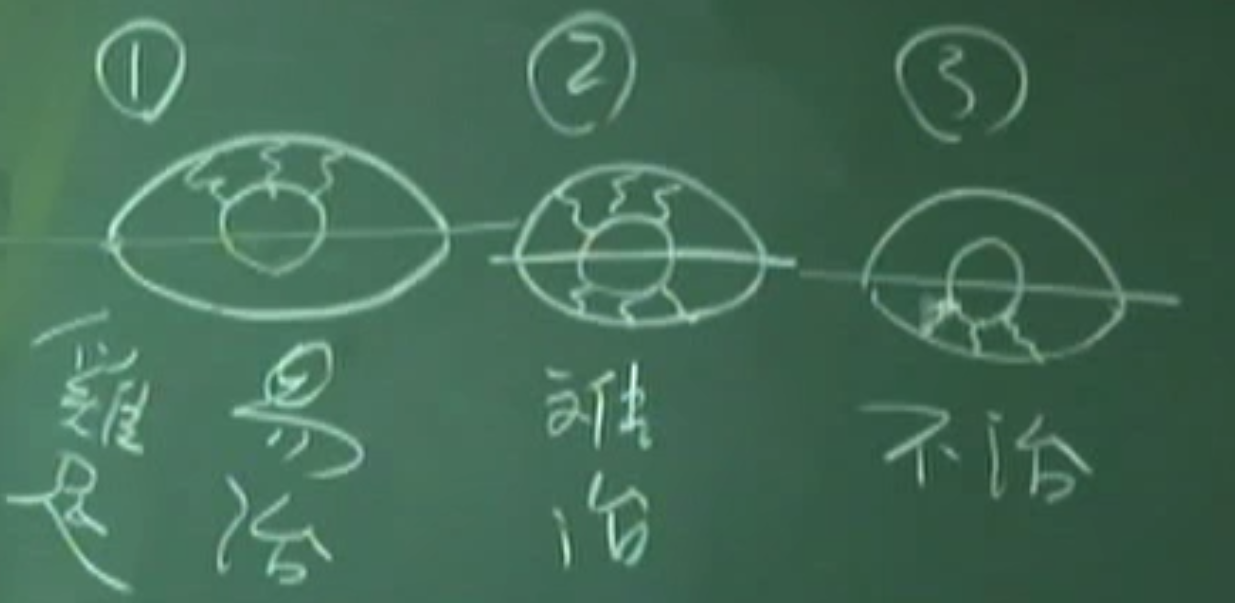 ①
②
③
易治
難治
不治